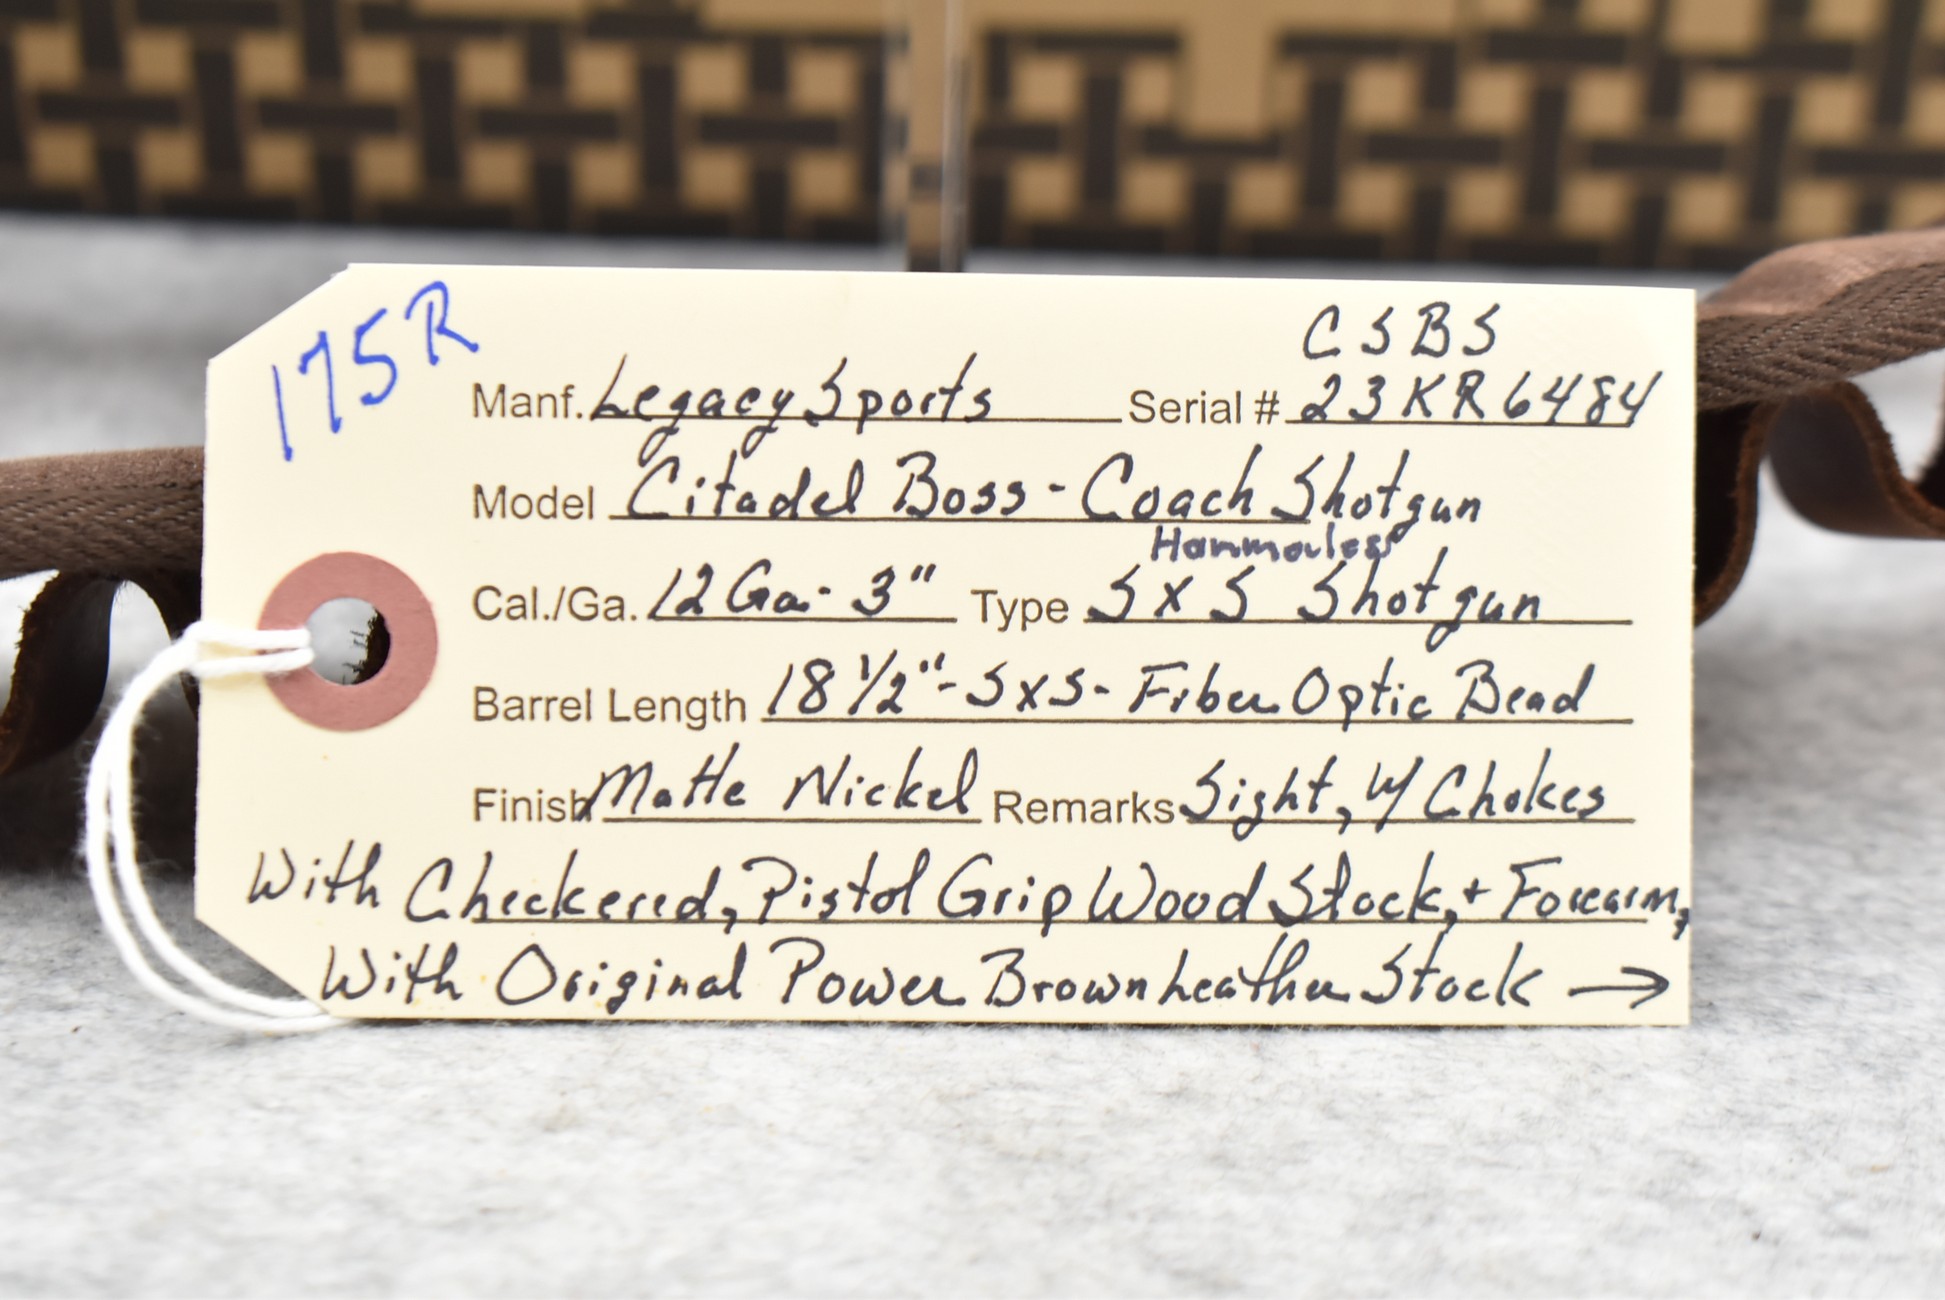 175R
CSBS
Manf. Legacy Sports Serial # 23KR6484
Model Citadel Boss - Coach Shotgun
Hammerless
Cal./Ga. 12 Ga. - 3" Type SXS Shotgun
Barrel Length 18 1/2" - SXS - Fiber Optic Bead
Finish Matte Nickel Remarks Sight, W/ Chokes
With Checkered, Pistol Grip Wood Stock, + Forearm,
With Original Power Brown Leather Stock →